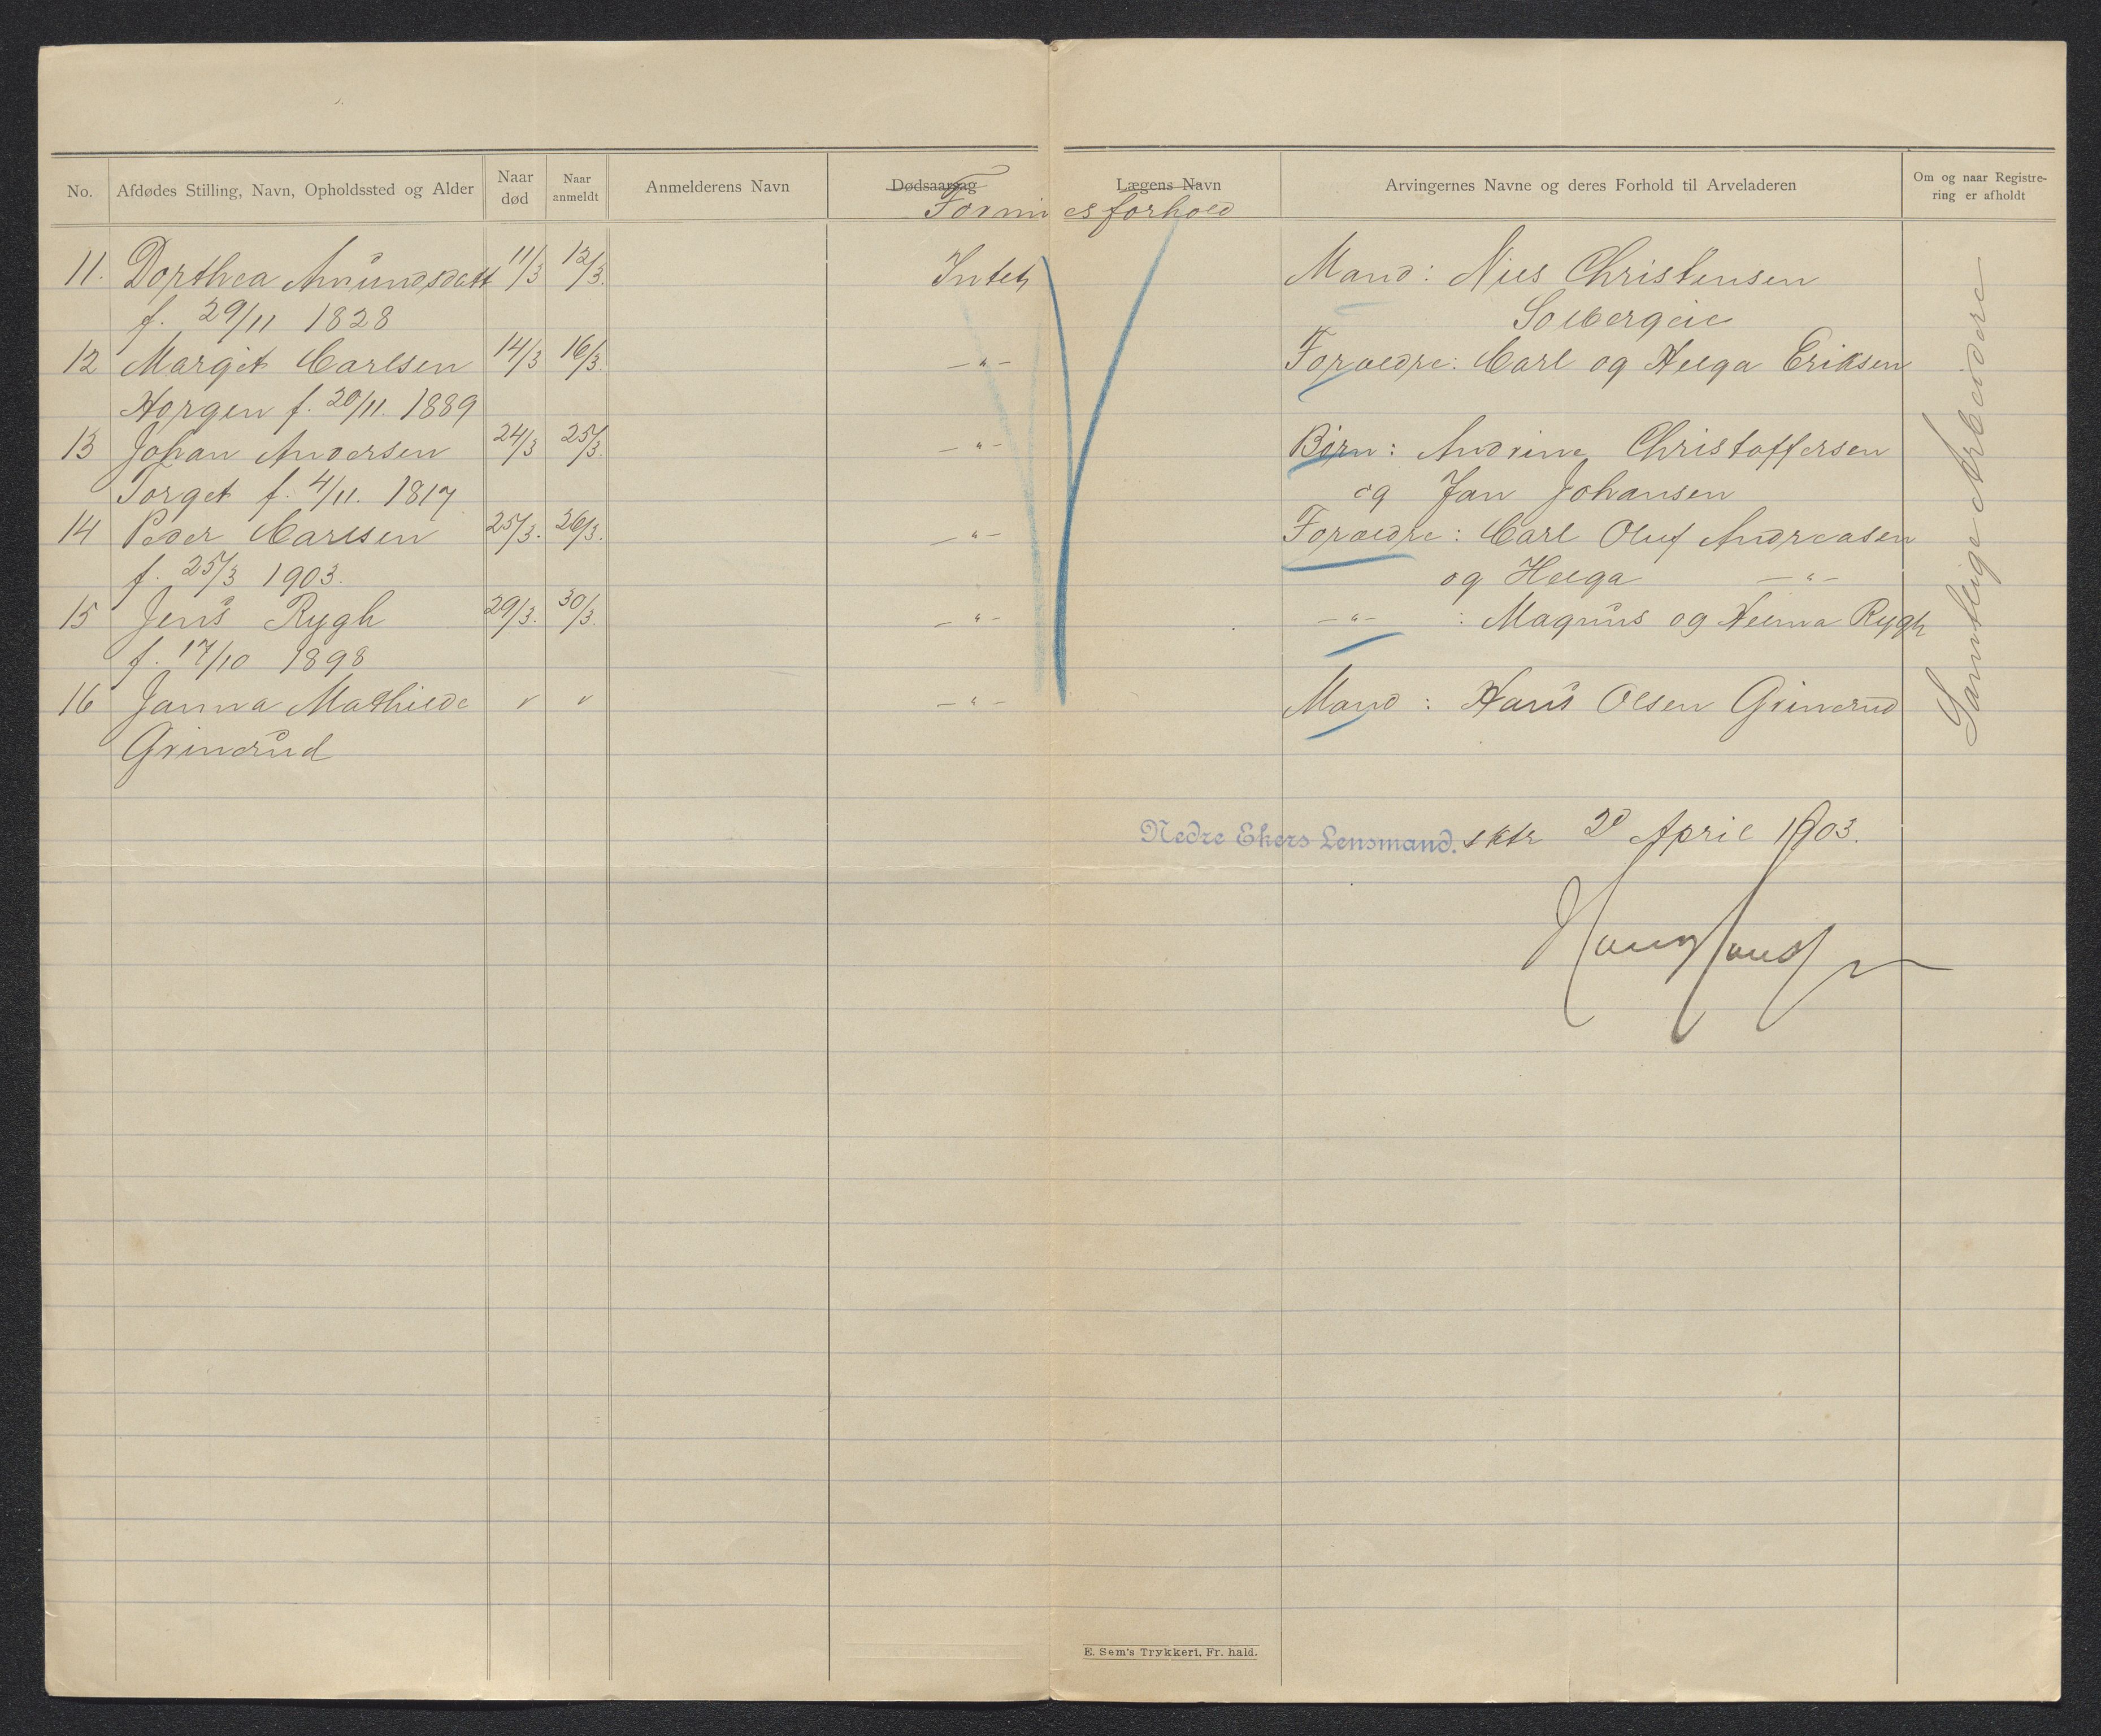 No. Afdødes Stilling, Navn, Opholdssted og Alder Naar død Naar anmeldt Anmelderens Navn Dødsaarsag Lægens Navn Arvingernes Navne og deres Forhold til Arveladeren Om og naar Registrering er afholdt
Formuesforhold
11. Dorthea Amundsdatt 11/3 12/3. Intet Mand: Nils Christensen
f. 29/11 1828 Solbergeie
12 Margit Carlsen 14/3 16/3. —"— Forældre: Carl og Helga Eriksen
Horgen f. 20/11. 1889
13 Johan Andersen 24/3 25/3. —"— Børn: Andrine Christoffersen
Torget f. 4/11. 1817 og Jan Johansen
14 Peder Carlsen 25/3. 26/3. —"— Forældre: Carl Oluf Andreasen
f. 25/3 1903. og Helga —"—
15 Jens Rygh 29/3. 30/3. —"— —"— : Magnus og Helma Rygh
f. 17/10 1898
16 Janna Mathilde v v —"— Mand: Hans Olsen Grinerud
Grinerud
Samtlige Arbeidere
Nedre Ekers Lensmand. sktr 2d April 1903.
E. Sem's Trykkeri, Fr. hald.